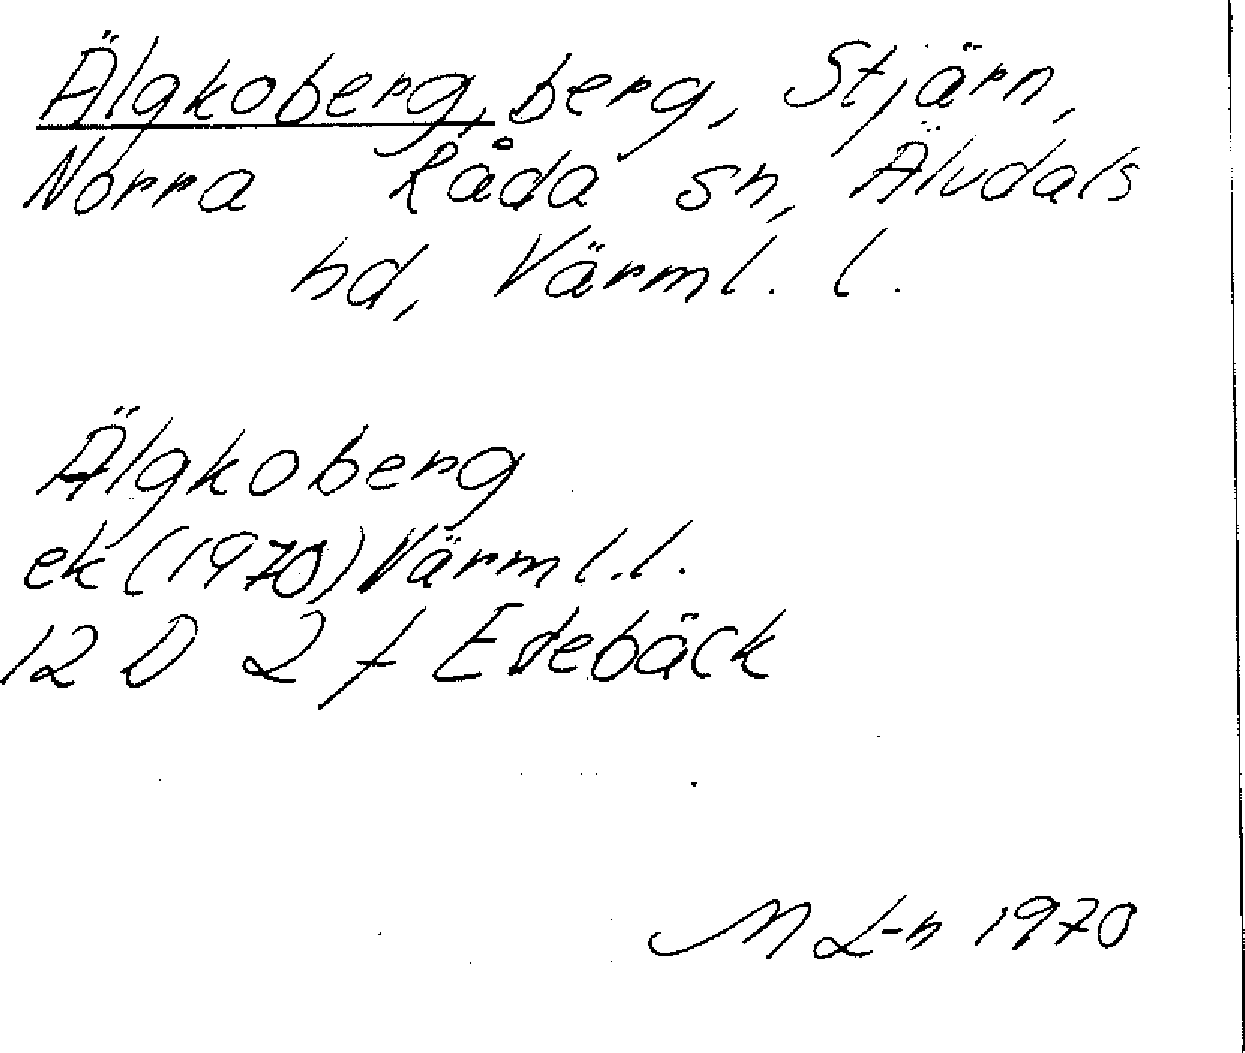 Älgkoberg, berg, Stjärn,
Norra Råda sn, Älvdals
hd, Värml. l.
Älgkoberg
ek (1970) Värml. l.
12 D 2 f Edebäck
M L-n 1970